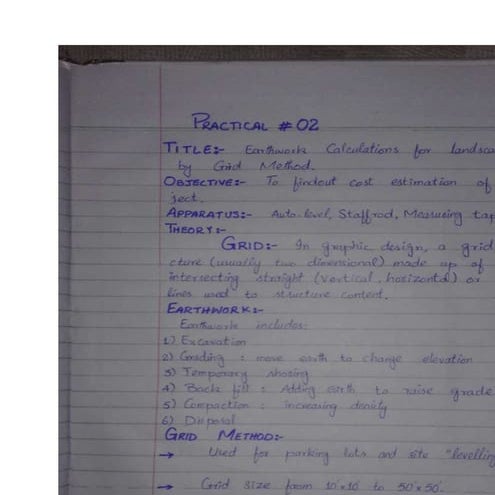 PRACTICAL # 02
TITLE:- Earthwork Calculations for landsca
by Grid Method.
OBJECTIVE:- To findout cost estimation of
ject.
APPARATUS:- Auto-level, Staff rod, Measuring tap
THEORY:-
GRID:- In graphic design, a grid
cture (usually two dimensional) made up of
intersecting straight (vertical, horizontal) or
lines used to structure content.
EARTHWORK:-
Earthwork includes:
1) Excavation
2) Grading : move earth to change elevation
3) Temporary shoring
4) Back fill : Adding earth to raise grade
5) Compaction : increasing density
6) Disposal
GRID METHOD:-
→ Used for parking lots and site "levelling
→ Grid size from 10'x10' to 50'x50'.